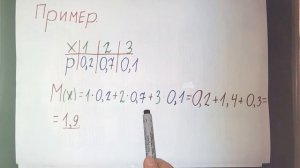 Пример.
X 1 2 3
p 0,2 0,7 0,1
M(x)=1·0,2+2·0,7+3·0,1=0,2+1,4+0,3=
=1,9